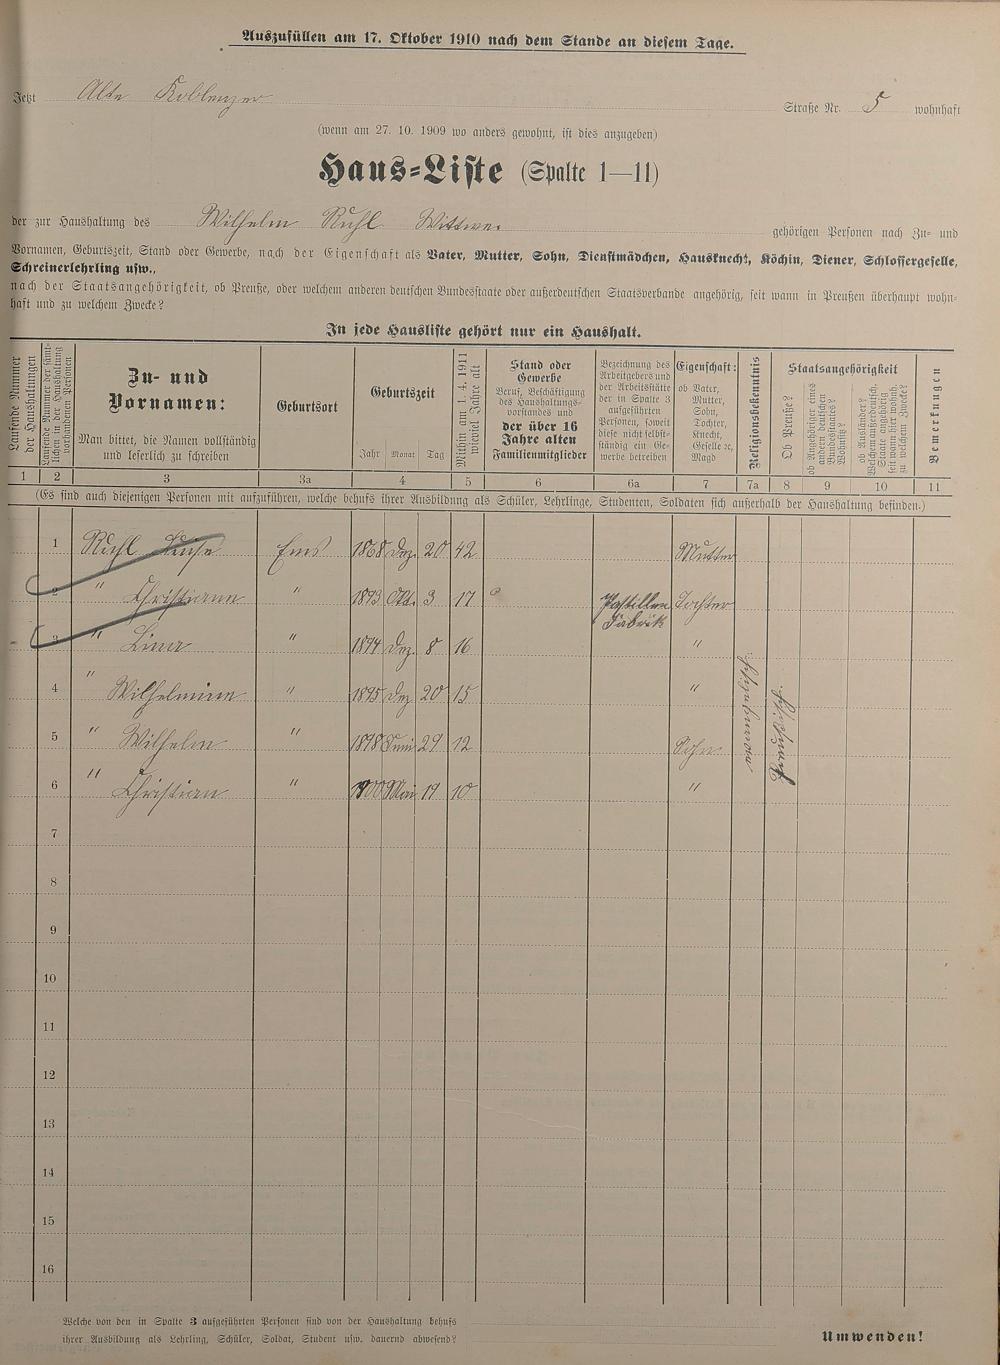 Auszufüllen am 17. Oktober 1910 nach dem Stande an diesem Tage.
Jetzt Alte Koblenzer Straße Nr. 5 wohnhaft
(wenn am 27. 10. 1909 wo anders gewohnt, ist dies anzugeben)
Haus=Liste (Spalte 1—11)
der zur Haushaltung des Wilhelm Ruhl Wittwe. gehörigen Personen nach Zu= und
Vornamen, Geburtszeit, Stand oder Gewerbe, nach der Eigenschaft als Vater, Mutter, Sohn, Dienstmädchen, Hausknecht, Köchin, Diener, Schlossergeselle,
Schreinerlehrling usw.,
nach der Staatsangehörigkeit, ob Preuße, oder welchem anderen deutschen Bundesstaate oder außerdeutschen Staatsverbande angehörig, seit wann in Preußen überhaupt wohn=
haft und zu welchem Zwecke?
In jede Hausliste gehört nur ein Haushalt.
Laufende Nummer
der Haushaltungen
Laufende Nummer der sämt=
lichen in der Haushaltung
vorhandenen Personen
Zu= und
Vornamen:
Man bittet, die Namen vollständig
und leserlich zu schreiben
Geburtsort
Geburtszeit
Jahr Monat Tag
Mithin am 1. 4. 1911
wieviel Jahre alt
Stand oder
Gewerbe
Beruf, Beschäftigung
des Haushaltungs=
vorstandes und
der über 16
Jahre alten
Familienmitglieder
Bezeichnung des
Arbeitgebers und
der Arbeitsstätte
der in Spalte 3
aufgeführten
Personen, soweit
diese nicht selbst=
ständig ein Ge=
werbe betreiben
Eigenschaft:
ob Vater,
Mutter,
Sohn,
Tochter,
Knecht,
Geselle ꝛc,
Magd
Religionsbekenntnis
Staatsangehörigkeit
Ob Preuße?
ob Angehöriger eines
andern deutschen
Bundesstaates?
Wohnsitz?
ob Ausländer?
Welchem außerdeutsch.
Staate angehörig
seit wann hier wohnh.
zu welchem Zwecke?
Bemerkungen
1 2 3 3a 4 5 6 6a 7 7a 8 9 10 11
(Es sind auch diejenigen Personen mit aufzuführen, welche behufs ihrer Ausbildung als Schüler, Lehrlinge, Studenten, Soldaten sich außerhalb der Haushaltung befinden.)
1 Ruhl Luise Ems 1868 Dez. 20 42 Mutter
2 " Christiane " 1893 Okt. 3 17 Pastillen Tochter
Fabrik
3 " Lina " 1894 Dez. 8 16 "
4 " Wilhelmine " 1895 Dez 20 15 "
5 " Wilhelm " 1898 Juni 29 12 Sohn
6 " Christian " 1900 Mai 19 10 "
7
8
9
10
11
12
13
14
15
16
Welche von den in Spalte 3 aufgeführten Personen sind von der Haushaltung behufs
ihrer Ausbildung als Lehrling, Schüler, Soldat, Student usw. dauernd abwesend?
Umwenden!